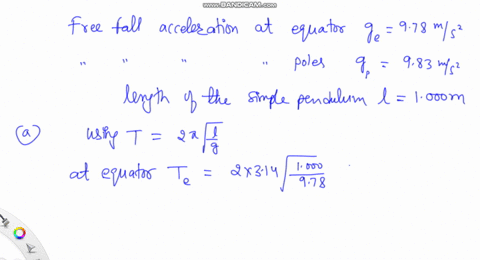 WWW.BANDICAM.COM
Free fall acceleration at equator g_e = 9.78 m/s²
" " " " poles g_p = 9.83 m/s²
length of the simple pendulum l = 1.000m
(a) using T = 2π√(l/g)
at equator T_e = 2×3.14√(1.000/9.78)